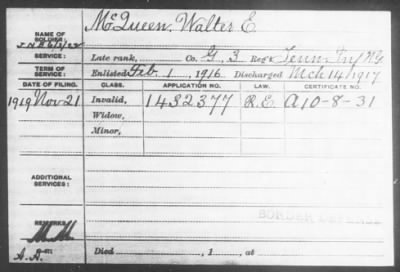 NAME OF SOLDIER: McQueen, Walter E.
SERVICE: Late rank, Co. G, 3 Reg't Tenn Inf NG
TERM OF SERVICE: Enlisted Feb 1, 1916. Discharged Mch 14, 1917
DATE OF FILING. CLASS. APPLICATION NO. LAW. CERTIFICATE NO.
1919 Nov 21 Invalid, 1432377 R.E. A10-8-31
Widow,
Minor,
ADDITIONAL SERVICES:
BORDER DEFENSE
REMARKS:
Died , 1 , at